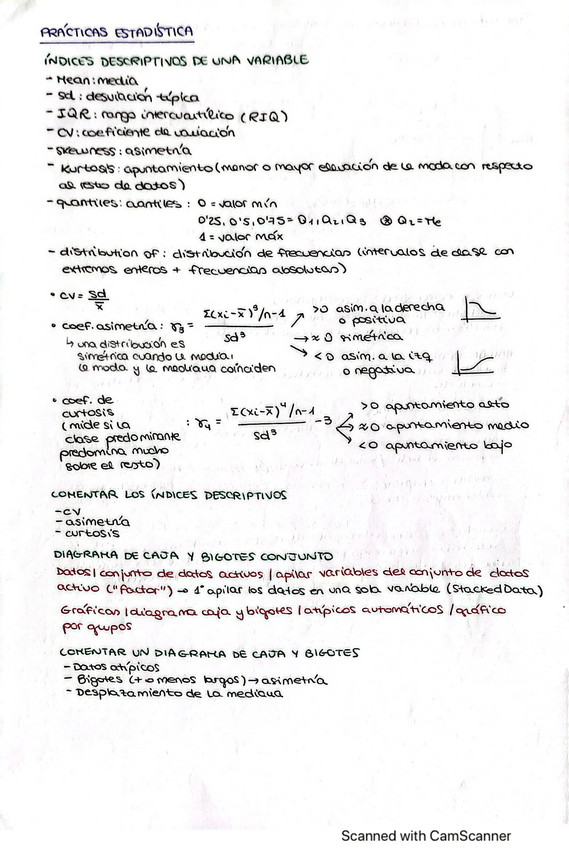 PRÁCTICAS ESTADÍSTICA
ÍNDICES DESCRIPTIVOS DE UNA VARIABLE
- Mean: media
- sd: desviación típica
- IQR: rango intercuartílico (RIQ)
- CV: coeficiente de variación
- skewness: asimetría
- Kurtosis: apuntamiento (menor o mayor elevación de la moda con respecto
al resto de datos)
- quantiles: cuantiles: 0 = valor mín
0'25, 0'5, 0'75 = Q1, Q2, Q3 ⊛ Q2 = Me
1 = valor máx
- distribution of: distribución de frecuencias (intervalos de clase con
extremos enteros + frecuencias absolutas)
• CV = sd / x̄
• coef. asimetría: γ3 = Σ(xi-x̄)³/n-1 / sd³
>0 asim. a la derecha
o positiva
→ ≈ 0 simétrica
<0 asim. a la izq
o negativa
↳ una distribución es
simétrica cuando la media,
la moda y la mediana coinciden
• coef. de
curtosis
(mide si la
clase predominante
predomina mucho
sobre el resto)
: γ4 = Σ(xi-x̄)⁴/n-1 / sd³ -3
>0 apuntamiento alto
≈0 apuntamiento medio
<0 apuntamiento bajo
COMENTAR LOS ÍNDICES DESCRIPTIVOS
- CV
- asimetría
- curtosis
DIAGRAMA DE CAJA Y BIGOTES CONJUNTO
Datos / conjunto de datos activos / apilar variables del conjunto de datos
activo ("factor") → 1º apilar los datos en una sola variable (StackedData)
Gráficas / diagrama caja y bigotes / atípicos automáticos / gráfico
por grupos
COMENTAR UN DIAGRAMA DE CAJA Y BIGOTES
- Datos atípicos
- Bigotes (+ o menos largos) → asimetría
- Desplazamiento de la mediana
Scanned with CamScanner